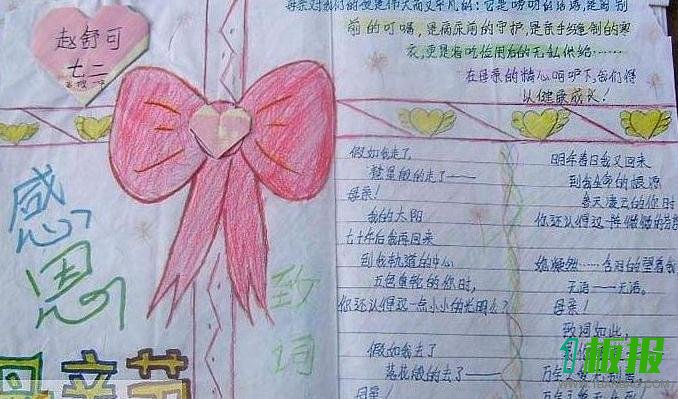 赵舒可
七二
母亲对我们的爱是伟大而又平凡的：它是唠叨的话语，是离别
前的叮嘱，更是病床前的守护，是亲手缝制的寒
衣，更是省吃俭用后的无私供给……
在母亲的精心呵护下，我们得
以健康成长！
感
恩
母亲节
致
词
假如我走了，
彗星般的走了——
母亲！
我的太阳
七十年后我再回来
到我轨道的中心
五色重轮的你时，
你还认得这一点小小的光明么？
假如我去了
落花般的去了——
母亲！
明年春日我又回来
到我生命的根源
参天凌云的你时
你还认得这一阵微微的芬芳
她凝然……含泪的望着我
无语——无语。
母亲！
致词如此，
板报
WWW.1BANBAO.COM